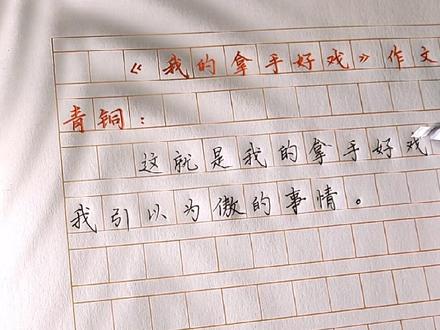 《我的拿手好戏》作文
青铜：
这就是我的拿手好戏
我引以为傲的事情。